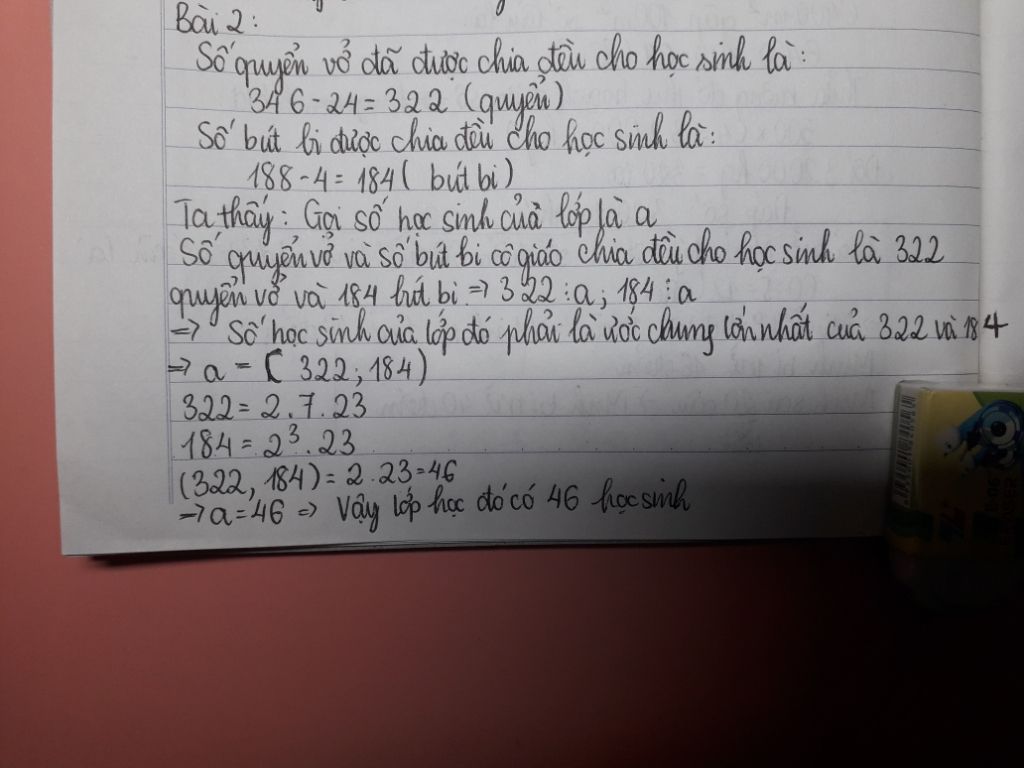 Bài 2:
Số quyển vở đã được chia đều cho học sinh là:
346 - 24 = 322 (quyển)
Số bút bi được chia đều cho học sinh là:
188 - 4 = 184 ( bút bi )
Ta thấy: Gọi số học sinh của lớp là a
Số quyển vở và số bút bi cô giáo chia đều cho học sinh là 322
quyển vở và 184 bút bi => 322 ⋮ a; 184 ⋮ a
=> Số học sinh của lớp đó phải là ước chung lớn nhất của 322 và 184
=> a = ( 322; 184 )
322 = 2.7.23
184 = 2³.23
(322, 184) = 2.23 = 46
=> a = 46 => Vậy lớp học đó có 46 học sinh